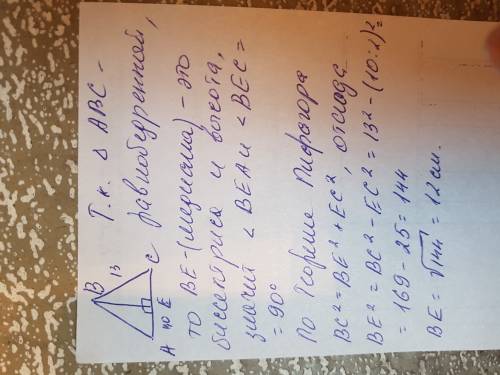 Т.к. Δ ABC -
B
13
A 10 E C
равнобедренной,
то BE-(медиана) - это
биссектриса и высота,
значит < BEA и < BEC =
= 90°
По Теореме Пифагора
BC² = BE² + EC², отсюда
BE² = BC² - EC² = 13² - (10:2)² =
= 169 - 25 = 144
BE = √144 = 12 см.